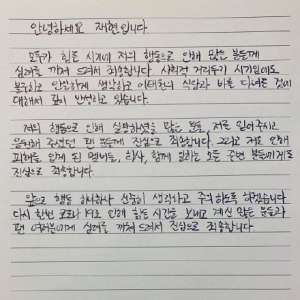 안녕하세요 재현입니다
모두가 힘든 시기에 저의 행동으로 인해 많은 분들께
심려를 끼쳐 드려서 죄송합니다. 사회적 거리두기 시기임에도
불구하고 안일하게 생각하고 이태원의 식당과 바를 다녀온 것에
대해서 깊이 반성하고 있습니다.
저의 행동으로 인해 실망하셨을 많은 분들, 저를 믿어주시고
응원해 주셨던 팬 분들께 진심으로 죄송합니다. 그리고 저로 인해
피해를 입게 된 멤버들, 회사, 함께 일하는 모든 주변 분들에게도
진심으로 죄송합니다.
앞으로 행동 하나하나 신중히 생각하고 주의하도록 하겠습니다.
다시 한번 코로나 바로 인해 힘든 시간을 보내고 계신 많은 분들과
팬 여러분에게 심려를 끼쳐 드려서 진심으로
죄송합니다.